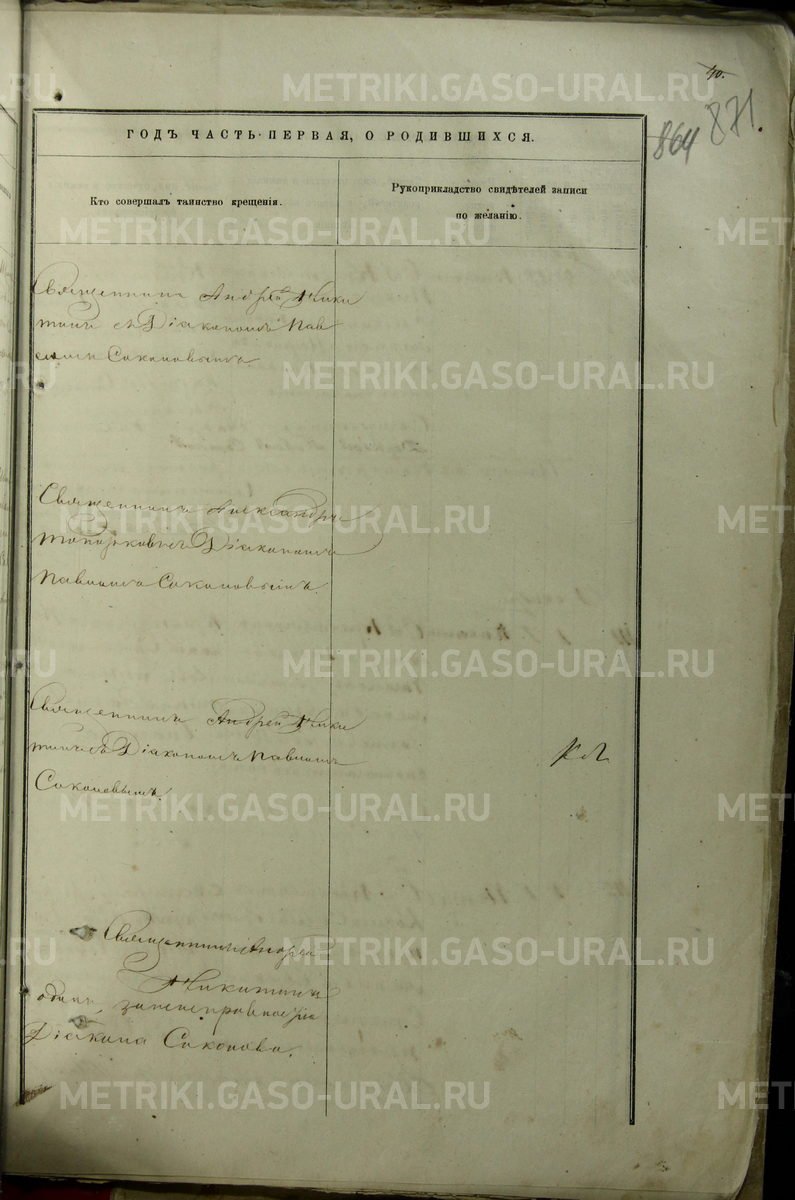 40.
871.
864
ГОДЪ ЧАСТЬ ПЕРВАЯ, О РОДИВШИХСЯ.
Кто совершалъ таинство крещенія.
Рукоприкладство свидѣтелей записи
по желанію.
Священникъ Андрей Ники
тинъ съ Діакономъ Пав
ломъ Соколовымъ.
Священникъ Александръ
Топорковъ съ Діакономъ
Павломъ Соколовымъ.
Священникъ Андрей Ники
тинъ съ Діакономъ Павломъ
Соколовымъ.
Священникъ Андрей
Никитинъ
одинъ, за
Діакона Соколова.
METRIKI.GASO-URAL.RU